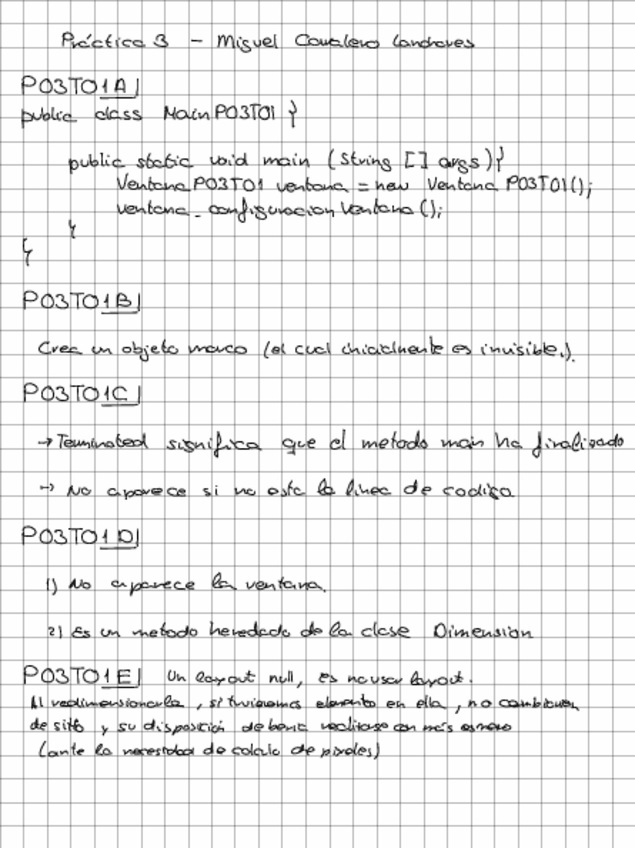 Práctica 3 - Miguel Cavalero Landraves
P03T01A
public class MainP03T01 {
public static void main (String [] args){
VentanaP03T01 ventana = new VentanaP03T01();
ventana.configuracionVentana();
}
}
P03T01B
Crea un objeto marco (el cual inicialmente es invisible.).
P03T01C
→ Terminated significa que el metodo main ha finalizado
→ No aparece si no esta la linea de codigo
P03T01D
1) No aparece la ventana.
2) Es un metodo heredado de la clase Dimension
P03T01E Un layout null, es no usar layout.
Al redimensionarla, si tuvieramos elemento en ella, no cambiaran
de sitio y su disposición deberia realizarse con más esmero
(ante la necesidad de calculo de pixeles)